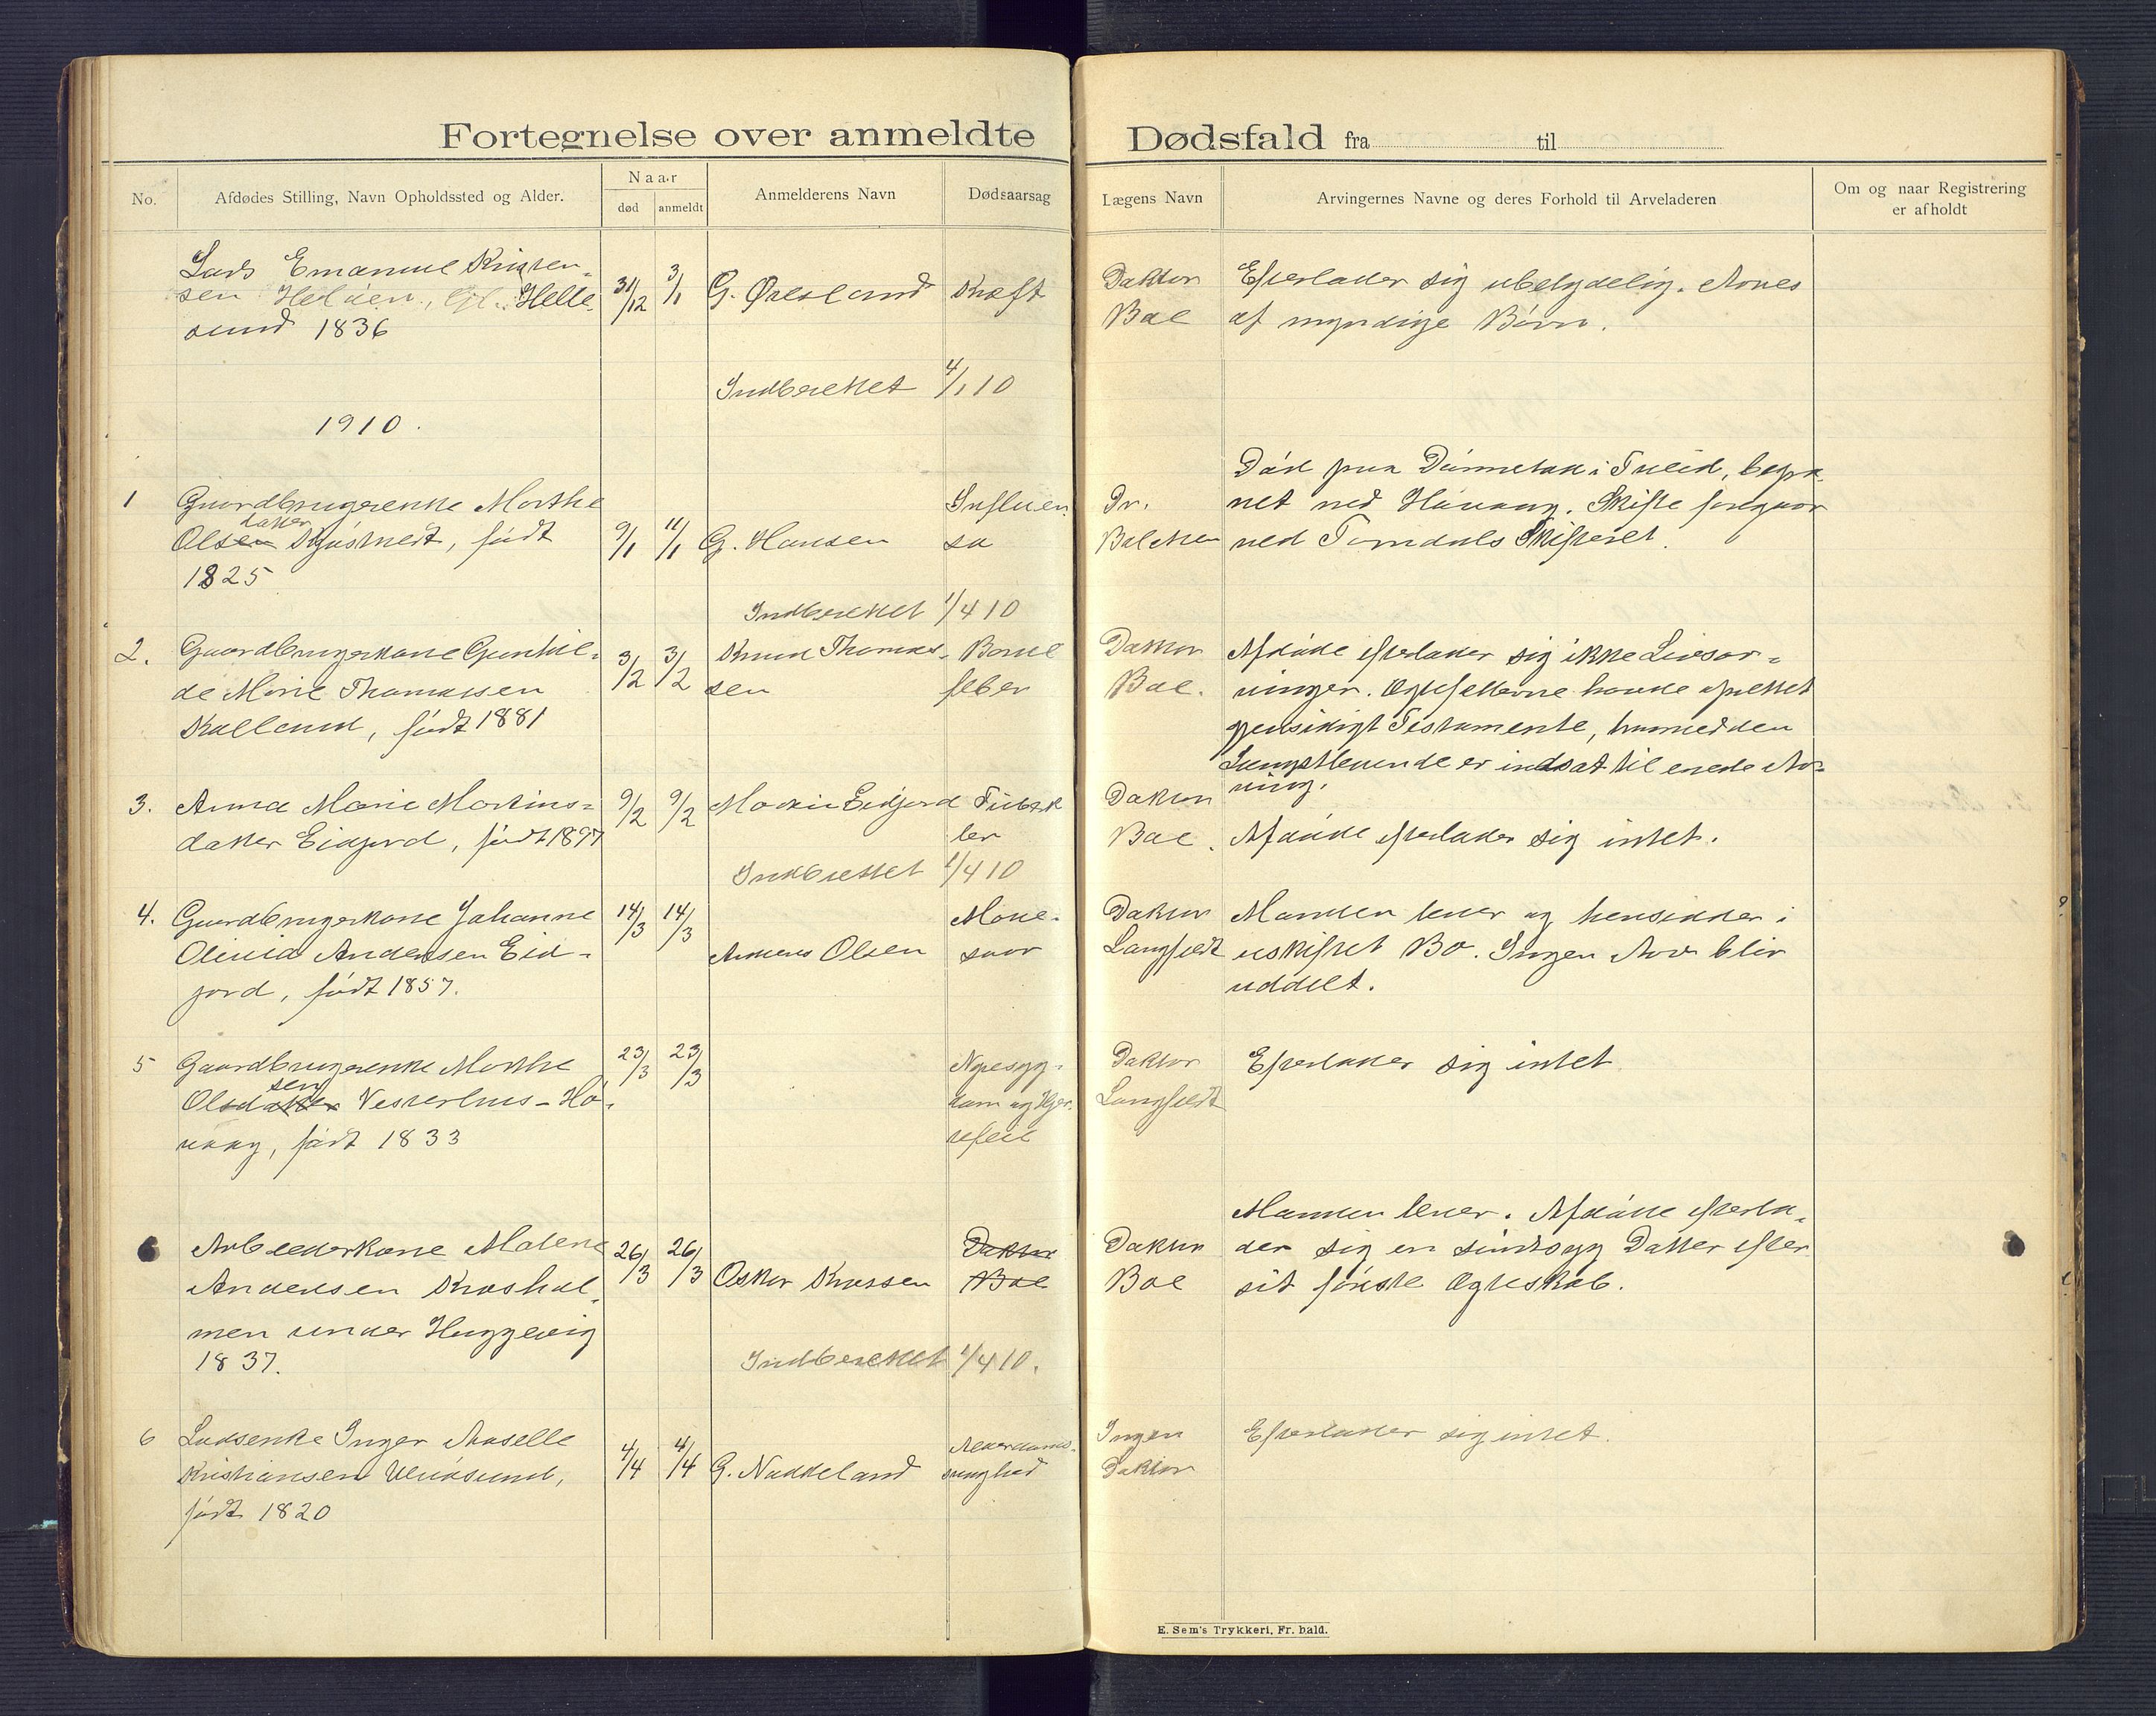 Fortegnelse over anmeldte Dødsfald fra til
No.
Afdødes Stilling, Navn Opholdssted og Alder.
Naar
død
anmeldt
Anmelderens Navn
Dødsaarsag
Lægens Navn
Arvingernes Navne og deres Forhold til Arveladeren
Om og naar Registrering
er afholdt
Lads Emanuel Kristen-
sen Heldien, Gl. Helle-
sund 1836
31/12
3/1
G. Øresland
Kræft
Doktor
Boe
Efterlader sig ubetydelig. Arves
af myndige Børn.
Indberettet 4/1 10
1910.
1
Gaardbrugerenke Marthe
datter
Olsen Kjøstvedt, født
1825
9/1
11/1
G. Hansen
Influen-
sa
Dr.
Balchen
Død paa Dønnestad i Tveid, begra-
vet ved Høvaag. Skifte foregaar
ved Torridals Skifteret.
Indberettet 1/4 10
2.
Gaardbrugerkone Gunhil-
de Marie Thomassen
Kalleund, født 1881
3/2
3/2
Knud Thomas-
sen
Barsel
feber
Doktor
Boe.
Afdøde efterlader sig ikke Livsar-
vinger. Ægtefellerne havde oprettet
gjensidigt Testamente, hvorved den
Længstlevende er indsat til eneste Ar-
ving.
3.
Anna Marie Martins-
datter Eidjord, født 1897
9/2
9/2
Martin Eidjord
Tuberk
ler
Doktor
Boe.
Afdøde efterlader sig intet.
Indberettet 1/4 10
4.
Gaardbrugerkone Johanne
Olivia Andersen Eid-
jord, født 1857.
14/3
14/3
Anders Olsen
Mave-
saar
Doktor
Langfeldt
Manden lever og hensidder i
uskiftet Bo. Ingen Arv blir
uddelt.
5
Gaardbrugerenke Marthe
sen
Olsdatter Vesterhus - Hø-
vaag, født 1833
23/3
23/3
Nyresyg-
dom og Hjer-
tefeil
Doktor
Langfeldt
Efterlader sig intet
6
Arbeiderkone Malene
Andersen Krashol-
men under Hæggevig
1837.
26/3
26/3
Oskar Krossen
Doktor
Boe
Doktor
Boe
Manden lever. Afdøde efterla-
der sig en sindssyg Datter efter
sit første Ægteskab.
Indberettet 1/4 10.
6
Lodsenke Inger Aaselle
Kristiansen Ulvøsund,
født 1820
4/4
4/4
G. Nakkeland
Alderdoms-
svaghed
Ingen
Doktor
Efterlader sig intet.
E. Sem's Trykkeri, Fr. hald.